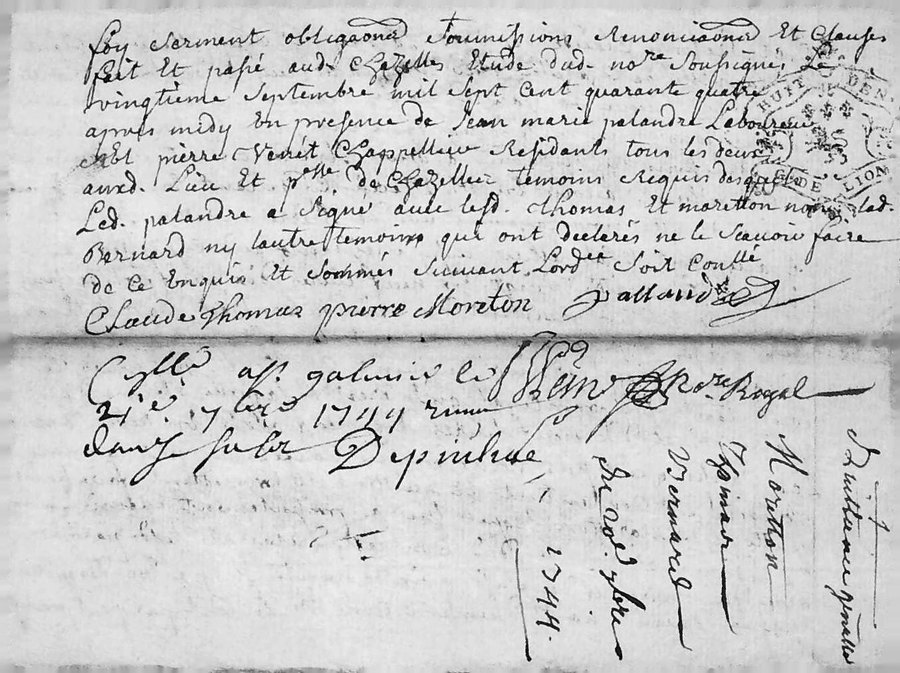 foy serment obliga͠ons soumissions Renoncia͠ons Et Clauses
fait Et passé aud. Chazelles Etude dud. no.re soussigné le
vingtième septembre mil sept cent quarante quatre
apres midy En presence de Jean marie palandre Laboureur
Et pierre Chappellier Residants tous les deux
auxd. Lieu Et p.sse de Chazelles temoins Requis desquels
Led. palandre a signé avec lesd. Thomas Et moretton non lad.
Bernard ny lautre temoins que ont declarés ne le scavoir faire
de ce Enquis Et sommés suivant Lord.et soit Conllé
Claude Thomas pierre Moreton pallandre
Cyllé a st galmier le no.re Royal
21e 7bre 1744
douze sols
HUIT DEN.
DE LION
Quittance generalle
Moretton
Thomas
Bernard
du 20e 7bre
1744.